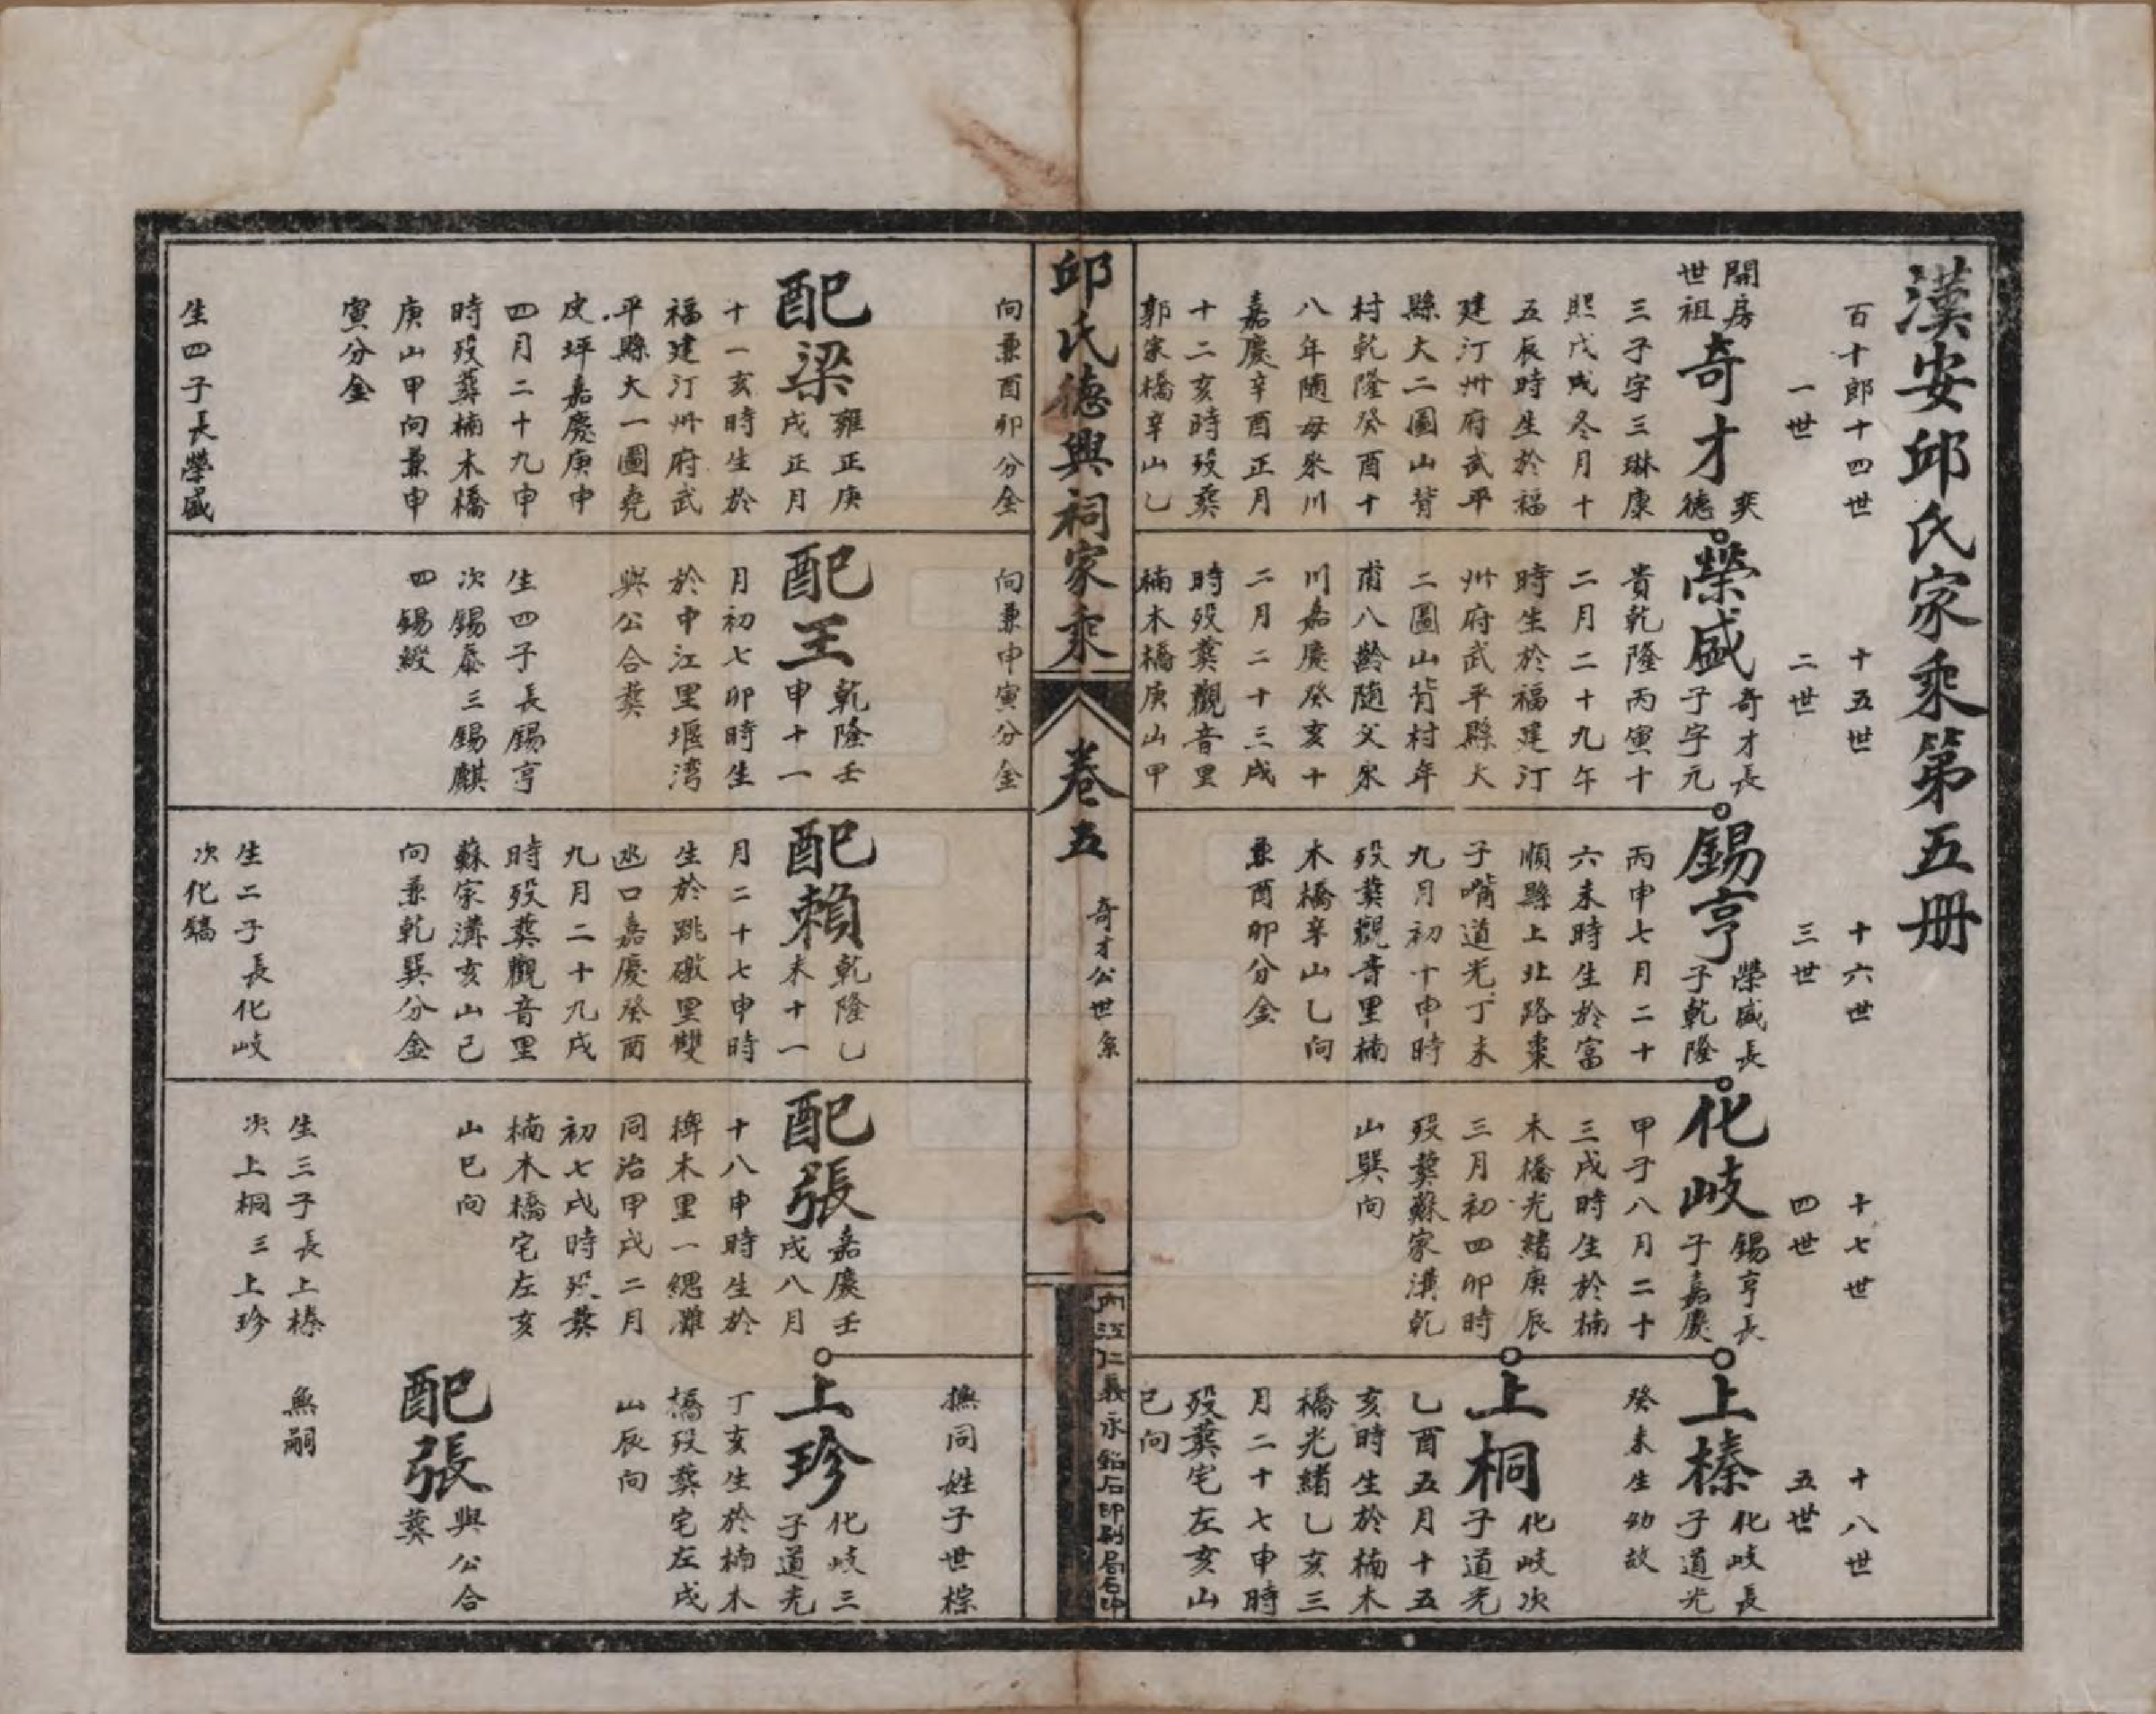 漢安邱氏家乘第五册
百十郎十四世
一世
十五世
二世
十六世
三世
十七世
四世
十八世
五世
開房
世祖
奇才
奕
德
三子字三琳康
熙戊戌冬月十
五辰時生於福
建汀州府武平
縣大二圖山背
村乾隆癸酉十
八年隨母來川
嘉慶辛酉正月
十二亥時殁葬
郭家橋辛山乙
向兼酉卯分金
配梁
雍正庚
戌正月
十一亥時生於
福建汀州府武
平縣大一圖堯
皮坪嘉慶庚申
四月二十九申
時殁葬楠木橋
庚山甲向兼申
寅分金
生四子長榮盛
榮盛
奇才長
子字元
貴乾隆丙寅十
二月二十九午
時生於福建汀
州府武平縣大
二圖山背村年
甫八齡随父來
川嘉慶癸亥十
二月二十三戌
時殁葬觀音里
楠木橋庚山甲
向兼申寅分金
配王
乾隆壬
申十一
月初七卯時生
於中江里堰湾
與公合葬
生四子長錫亨
次錫泰三錫麒
四錫緞
錫亨
榮盛長
子乾隆
丙申七月二十
六未時生於富
順縣上北路棗
子嘴道光丁未
九月初十申時
殁葬觀音里楠
木橋辛山乙向
兼酉卯分金
配賴
乾隆乙
未十一
月二十七申時
生於跳礅里雙
凼口嘉慶癸酉
九月二十九戌
時殁葬觀音里
蘇家溝亥山己
向兼乾巽分金
生二子長化岐
次化鎬
化岐
錫亨長
子嘉慶
甲子八月二十
三戌時生於楠
木橋光緒庚辰
三月初四卯時
殁葬蘇家溝乾
山巽向
配張
嘉慶壬
戌八月
十八申時生於
椑木里一緦灘
同治甲戌二月
初七戌時殁葬
楠木橋宅左亥
山巳向
生三子長上榛
次上桐三上珍
上榛
化岐長
子道光
癸未生幼故
上桐
化岐次
子道光
乙酉五月十五
亥時生於楠木
橋光緒乙亥三
月二十七申時
殁葬宅左亥山
巳向
撫同姓子世棕
上珍
化岐三
子道光
丁亥生於楠木
橋殁葬宅左戌
山辰向
配張
與公合
葬
無嗣
邱氏德興祠家乘
卷五
奇才公世系
一
內江仁義永鉛石印刷局石印